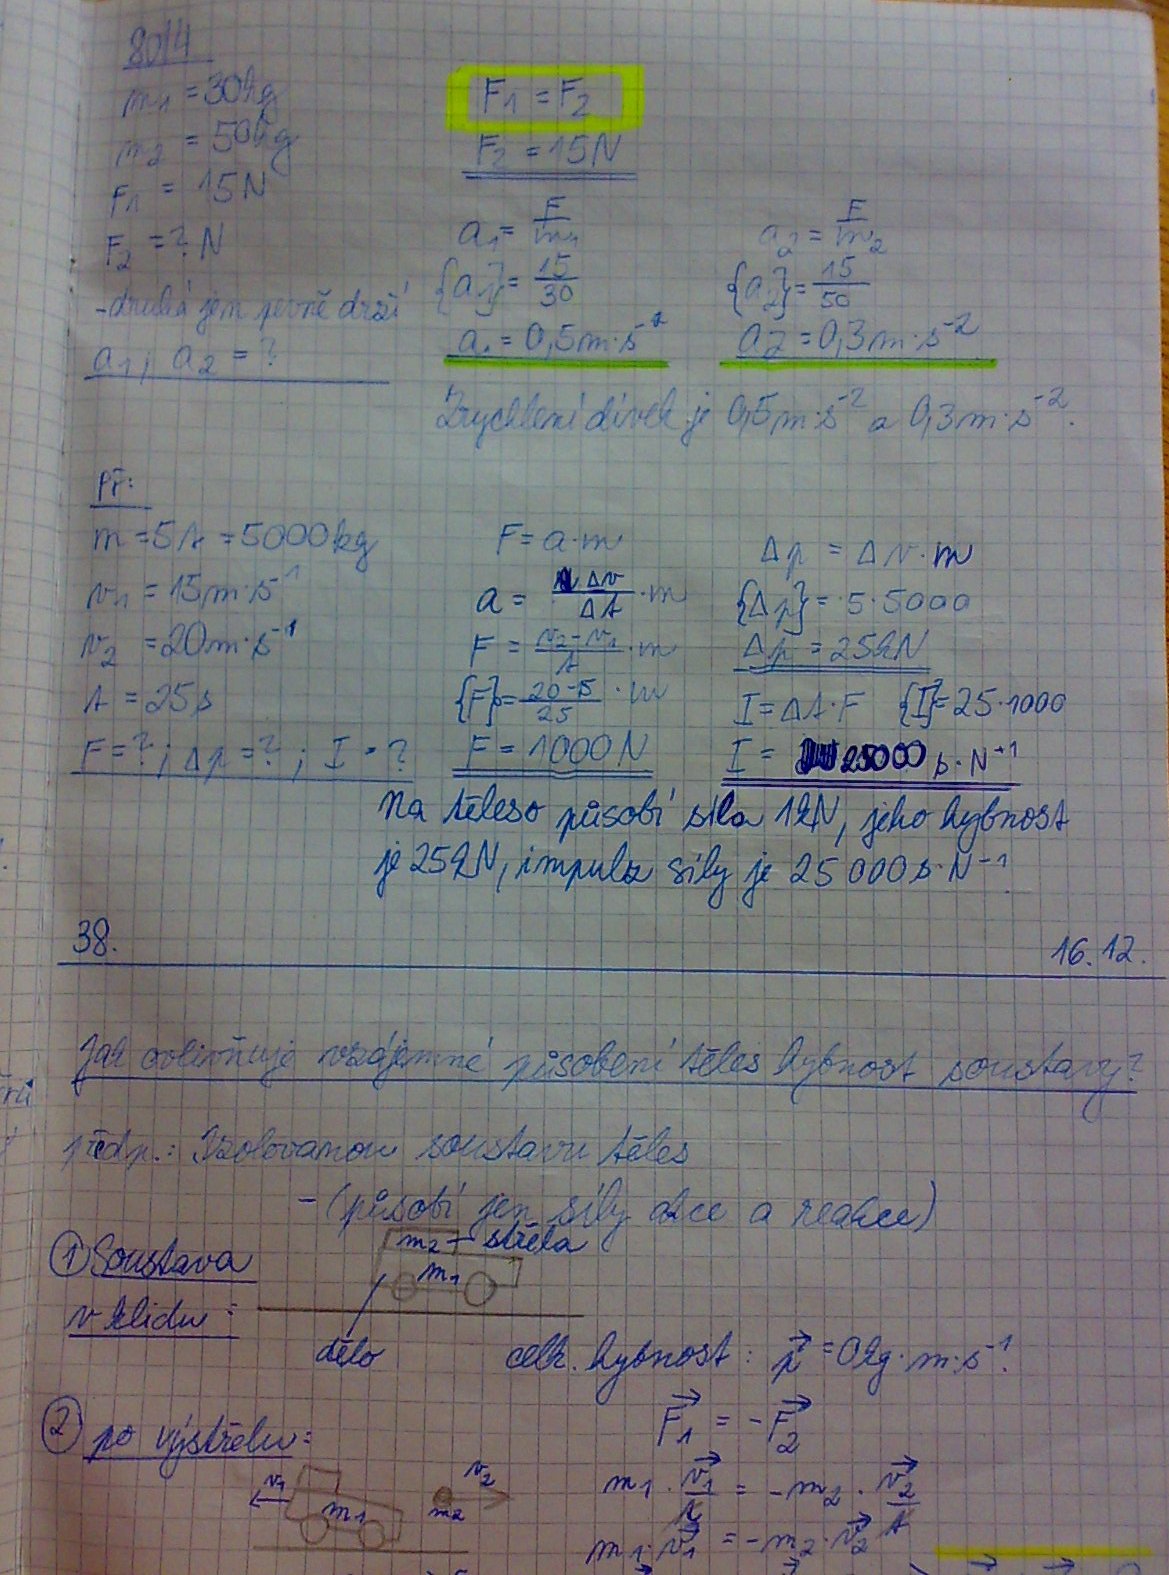 80/4
m₁ = 30kg
m₂ = 50kg
F₁ = 15N
F₂ = ? N
-druhá jen pevně drží
a₁, a₂ = ?
F₁ = F₂
F₂ = 15N
a₁ = F/m₁
{a₁} = 15/30
a₁ = 0,5m·s⁻²
a₂ = F/m₂
{a₂} = 15/50
a₂ = 0,3m·s⁻²
Zrychlení dívek je 0,5m·s⁻² a 0,3m·s⁻².
Př:
m = 5t = 5000kg
v₁ = 15m·s⁻¹
v₂ = 20m·s⁻¹
t = 25s
F = ? ; Δp = ? ; I = ?
F = a·m
a = Δv/Δt · m
F = v₂-v₁/t · m
{F} = 20-15/25 · m
F = 1000N
Δp = Δv·m
{Δp} = 5·5000
Δp = 25kN
I = Δt·F {I} = 25·1000
I = 25000 s·N⁻¹
Na těleso působí síla 1kN, jeho hybnost
je 25kN, impulz síly je 25 000 s·N⁻¹
38. 16.12.
Jak ovlivňuje vzájemné působení těles hybnost soustavy?
předp.: Izolovanou soustavu těles
- (působí jen síly akce a reakce)
① Soustava
v klidu:
m₂ - střela
m₁
dělo
celk. hybnost: p⃗ = 0kg·m·s⁻¹.
② po výstřelu:
v₁ m₁ m₂ v₂
F⃗₁ = -F⃗₂
m₁ · v⃗₁/t = -m₂ · v⃗₂/t
m₁·v⃗₁ = -m₂·v⃗₂